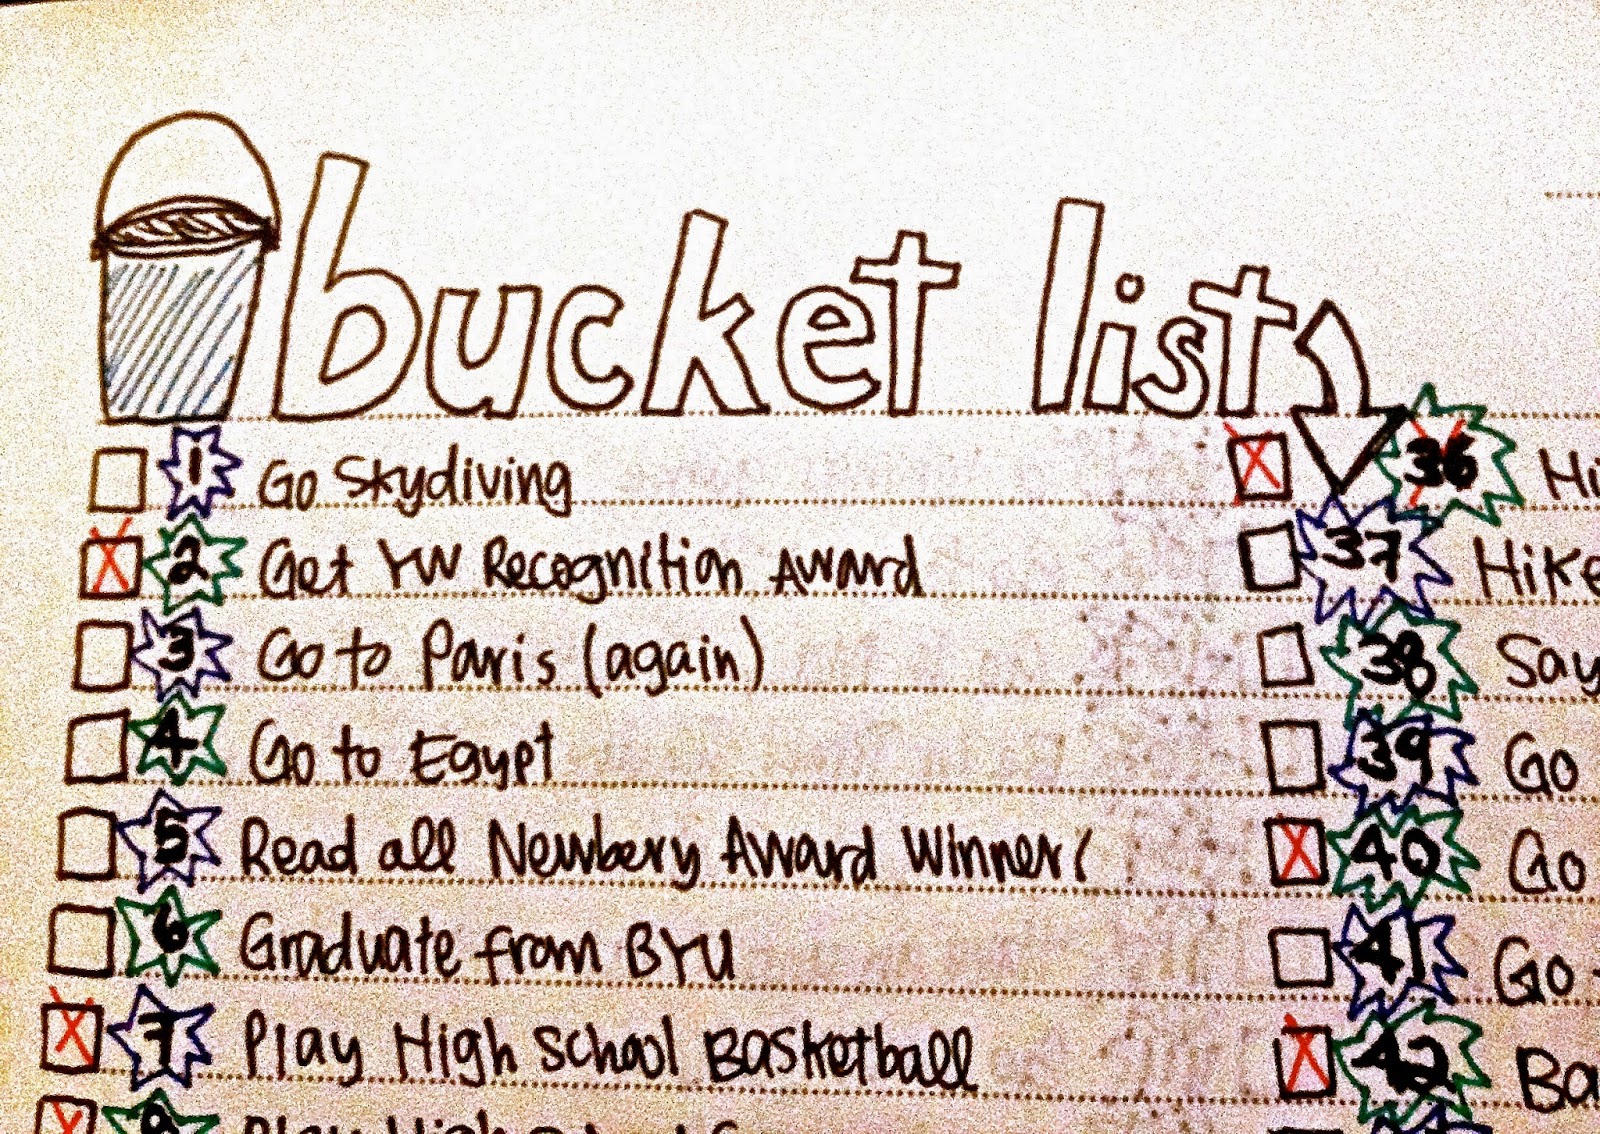 bucket list
1 Go Skydiving
2 Get YW Recognition Award
3 Go to Paris (again)
4 Go to Egypt
5 Read all Newbery Award Winner
6 Graduate from BYU
7 Play High School Basketball
8 Play High
36 Hi
37 Hike
38 Say
39 Go
40 Go
41 Go
42 Ba